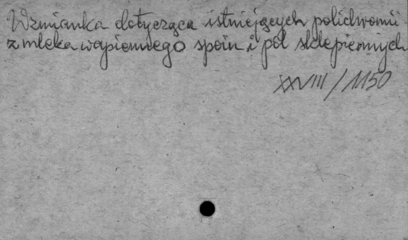 Wzmianka dotycząca istniejących polichromii
z mleka wapiennego spoin i pól sklepiennych
XXVIII / 1150